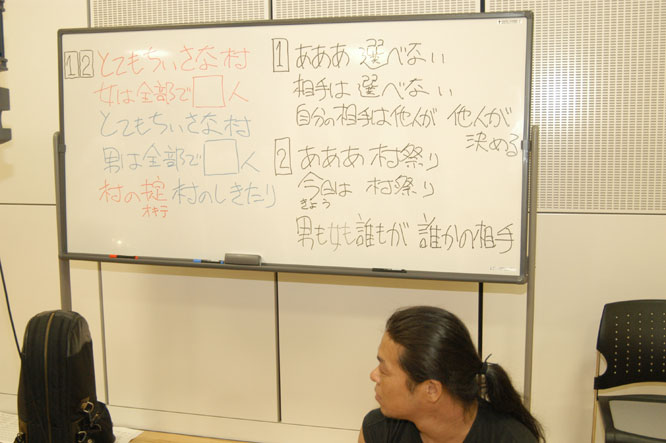 1 2 とてもちいさな村
女は全部で□人
とてもちいさな村
男は全部で□人
村の掟 村のしきたり
オキテ
1 あああ 選べない
相手は 選べない
自分の相手は他人が 他人が
決める
2 あああ 村祭り
今日は 村祭り
きょう
男も女も誰もが 誰かの相手